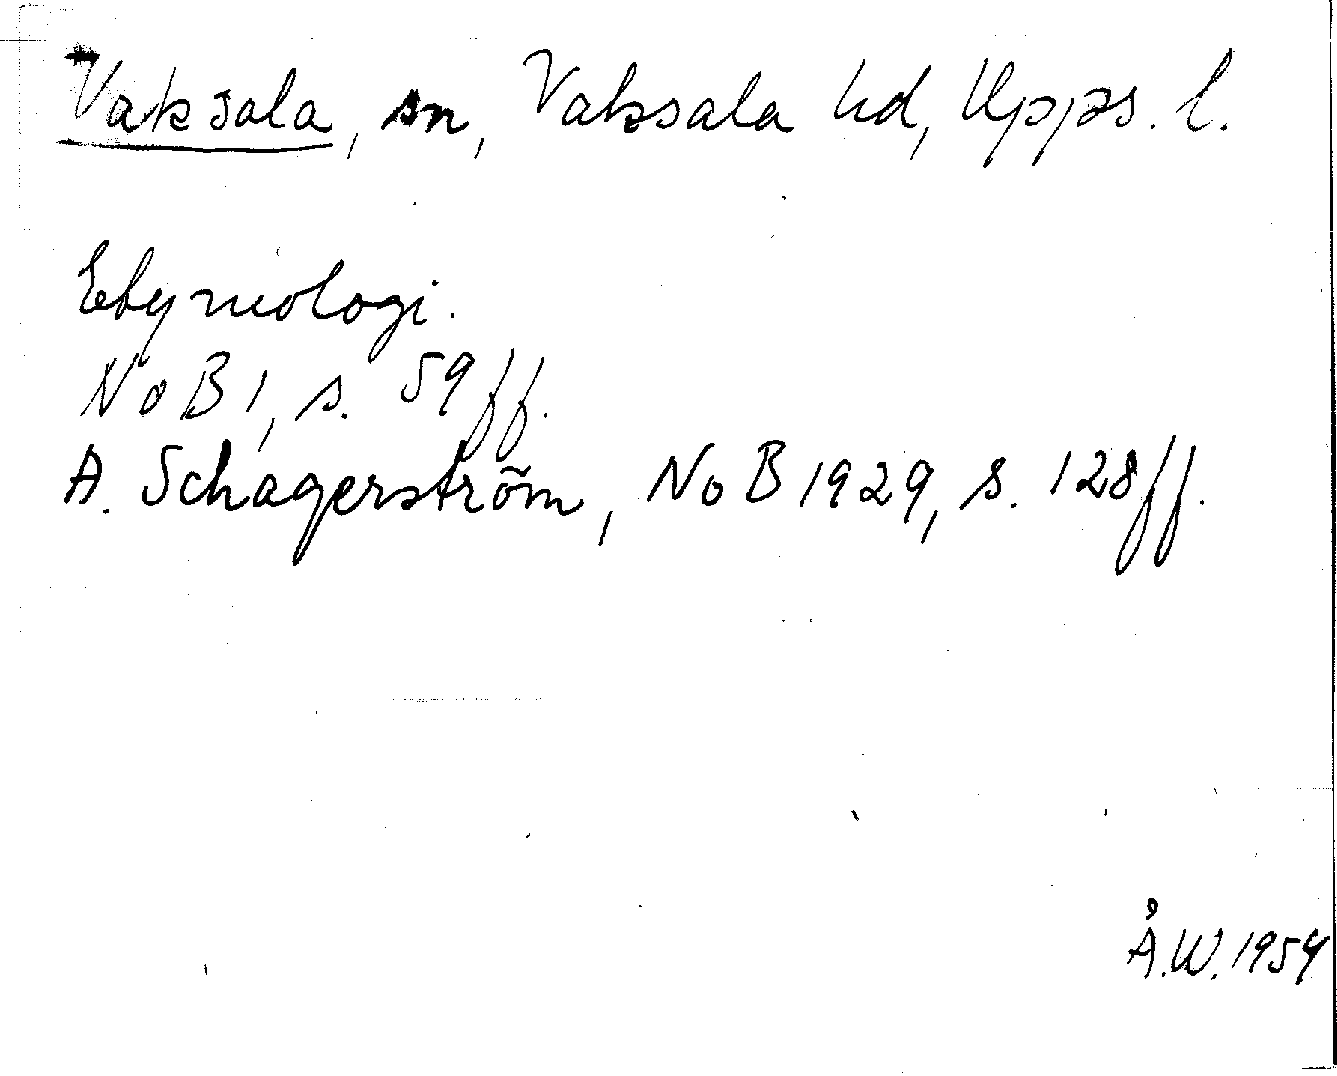 Vaksala, sn, Vaksala hd, Upps. l.
Etymologi.
NoB 1, s. 59 ff.
A. Schagerström, NoB 1929, s. 128 ff.
Å.W. 1954